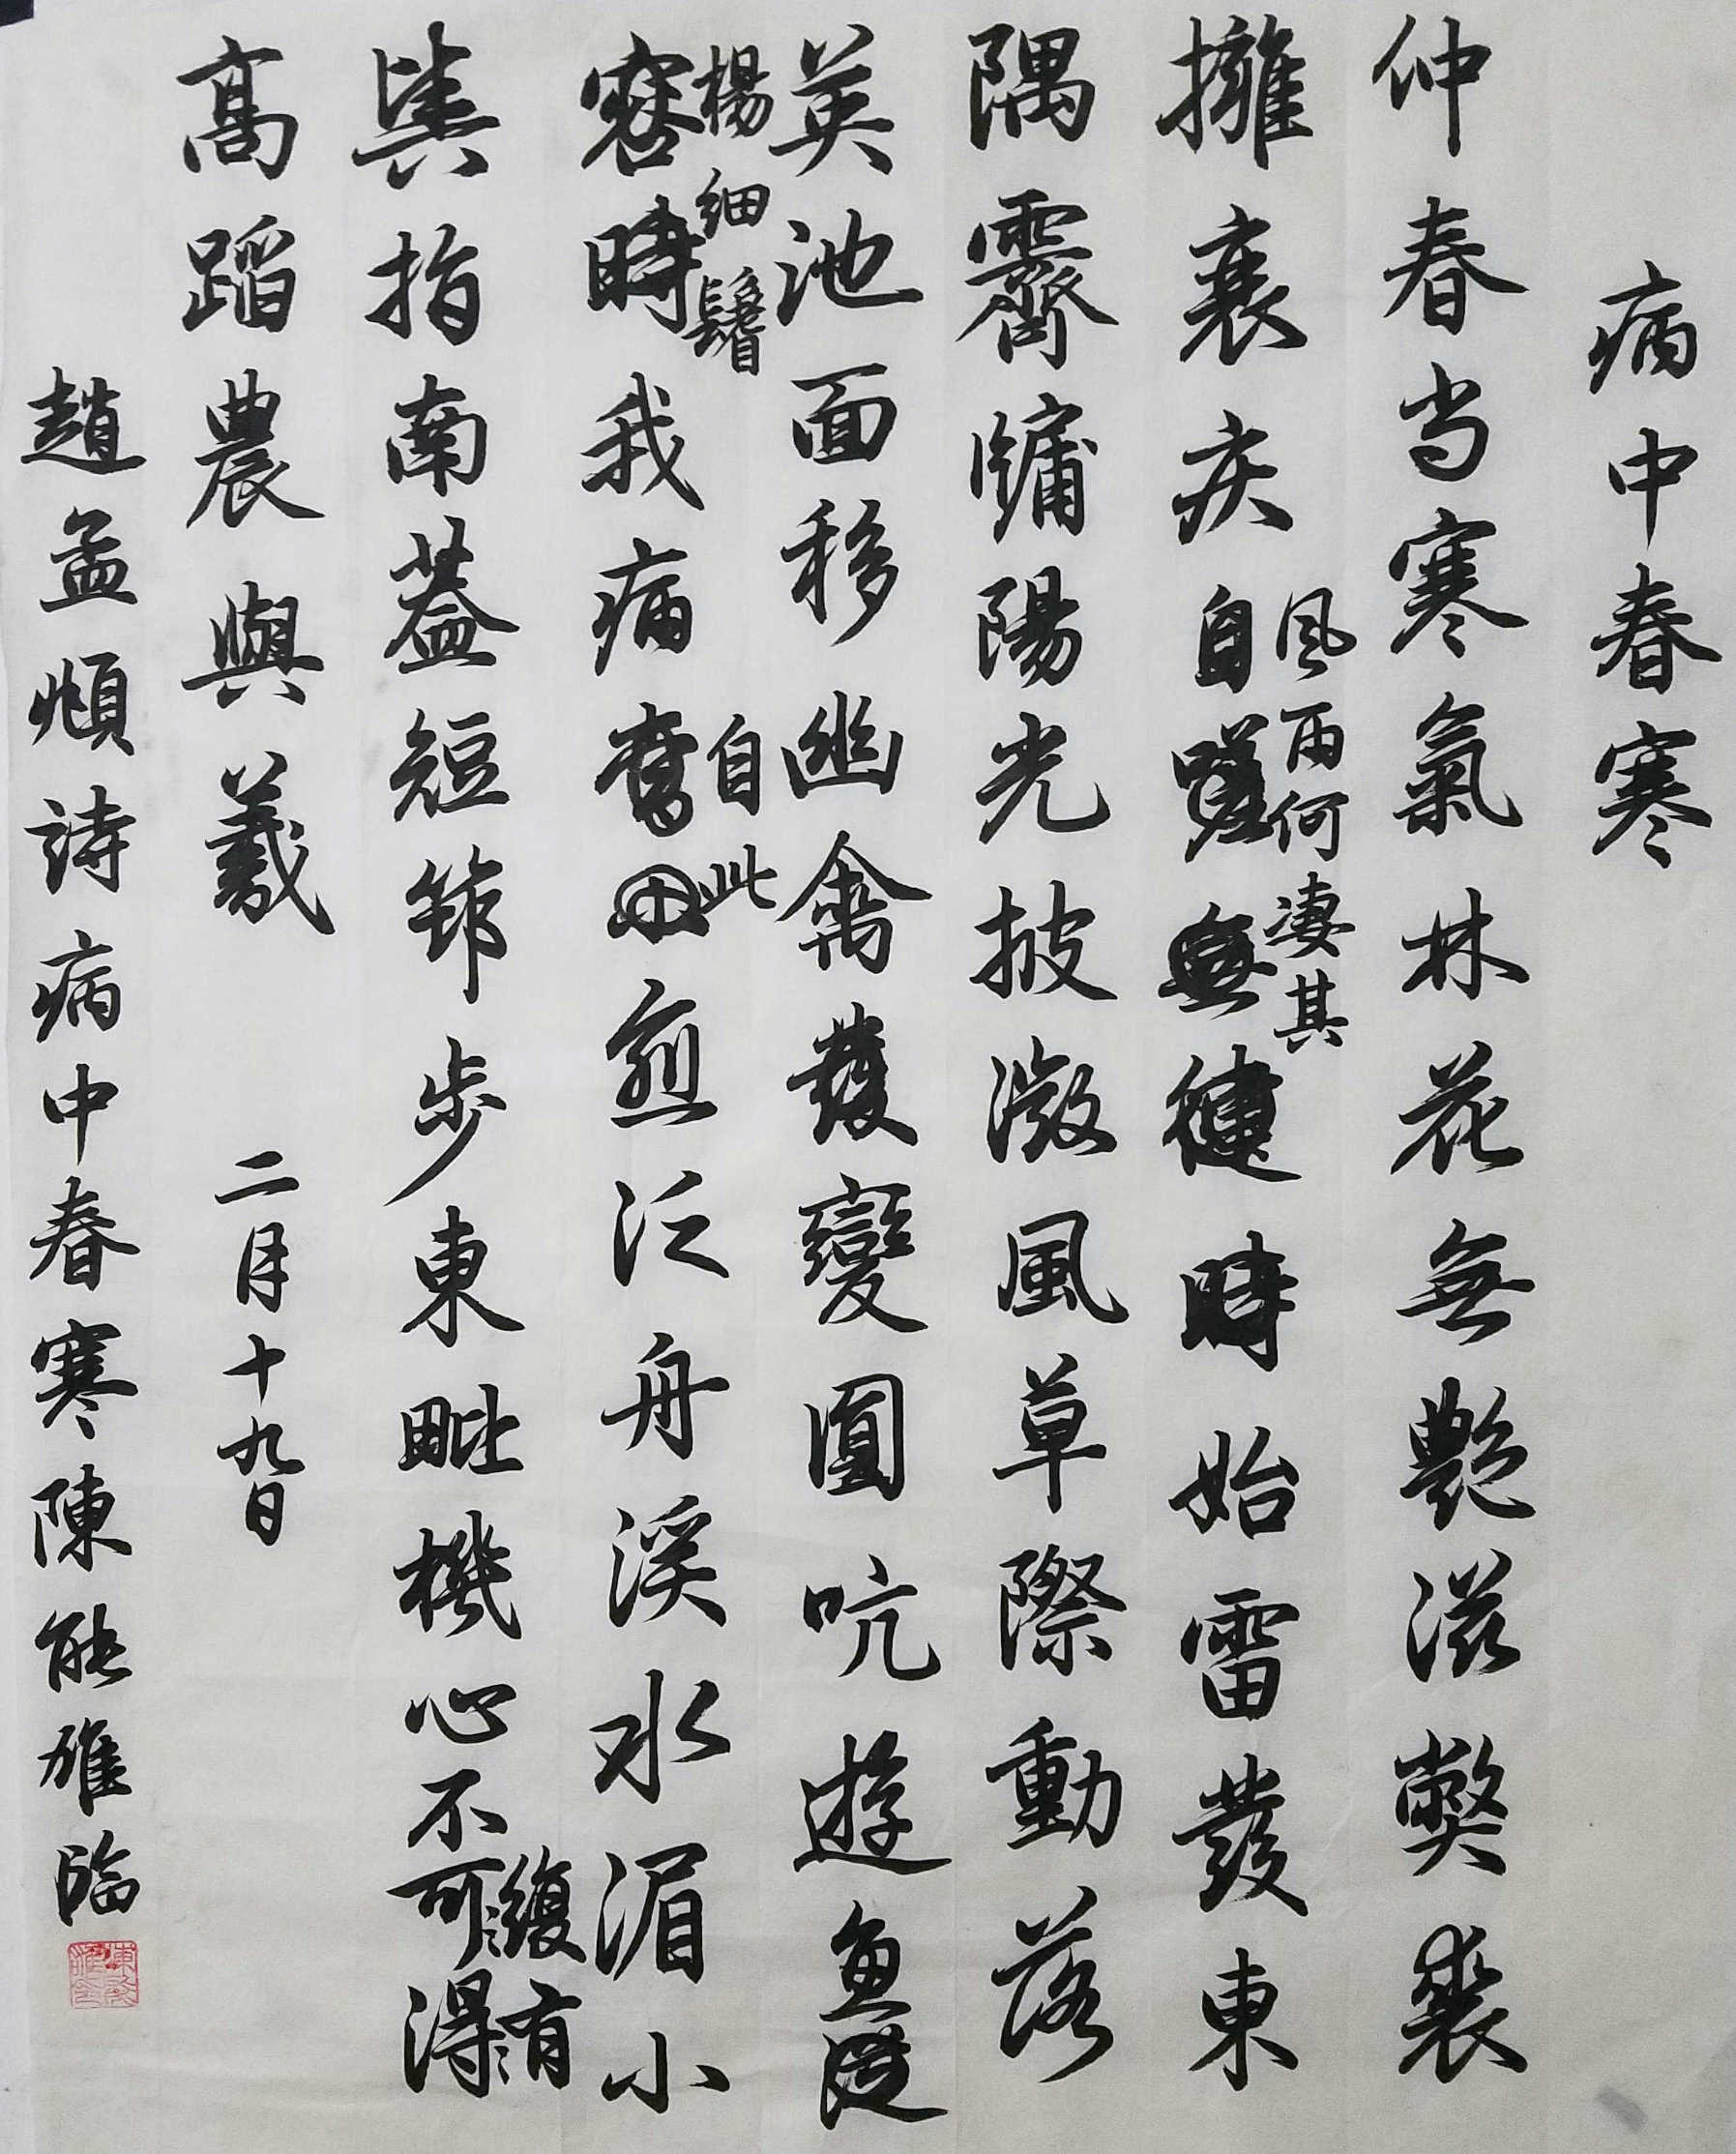 病中春寒
仲春当寒氣林花無艷滋獘裘
擁衰疾自嘆無健時始雷發東
風雨何凄其
隅霽牖陽光披微風草際動落
英池面移幽禽發變圓吭遊魚
楊細鬐
容時我病奮煎泛舟溪水湄小
自此
輿指南蓋短節步東毗機心不可得
復有
高蹈農與羲 二月十九日
趙孟頫詩病中春寒陳能雄臨